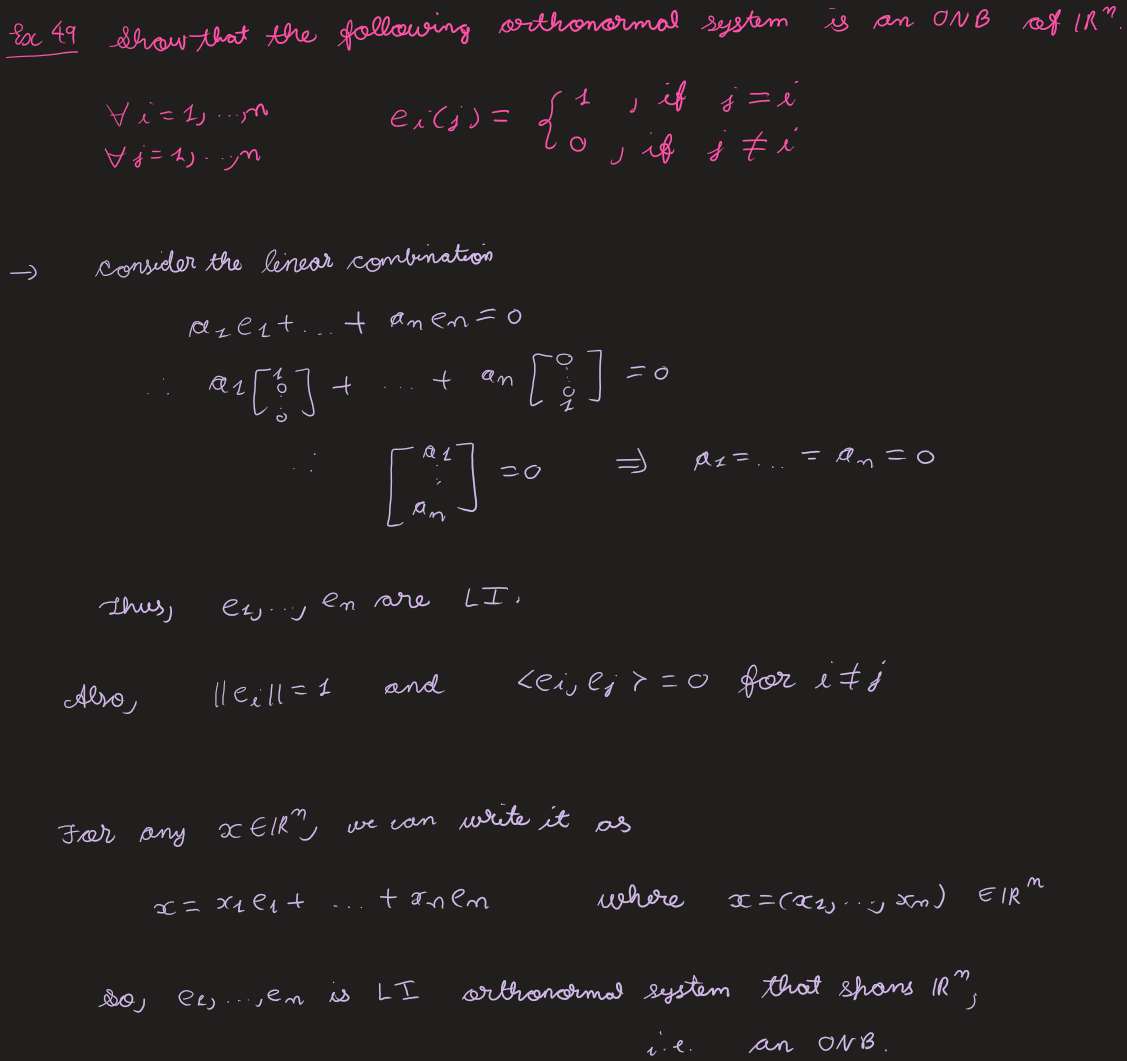 Ex 49 Show that the following orthonormal system is an ONB of ℝⁿ.
∀ i = 1, ..., n    eᵢ(j) = { 1 , if j = i
∀ j = 1, ..., n    0 , if j ≠ i
→ Consider the linear combination
a₁e₁ + ... + aₙeₙ = 0
∴ a₁ [1 0 ⋮ 0] + ... + aₙ [0 ⋮ 0 1] = 0
∴ [a₁ ⋮ aₙ] = 0 ⇒ a₁ = ... = aₙ = 0
Thus, e₁, ..., eₙ are LI.
Also, ||eᵢ|| = 1 and <eᵢ, eⱼ> = 0 for i ≠ j
For any x ∈ ℝⁿ, we can write it as
x = x₁e₁ + ... + xₙeₙ where x = (x₁, ..., xₙ) ∈ ℝⁿ
So, e₁, ..., eₙ is LI orthonormal system that spans ℝⁿ,
i.e. an ONB.